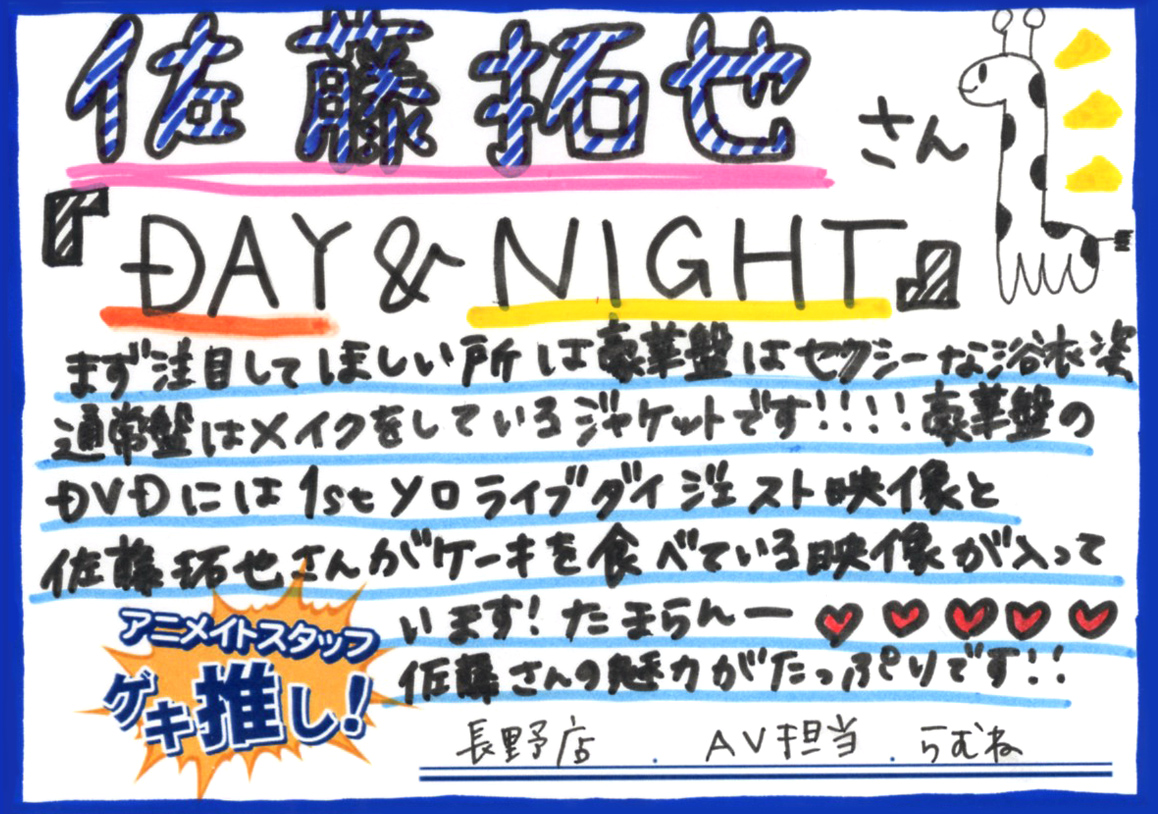 佐藤拓也さん
『DAY & NIGHT』
まず注目してほしい所は豪華盤はセクシーな浴衣姿
通常盤はメイクをしているジャケットです!!!!豪華盤の
DVDには1stソロライブダイジェスト映像と
佐藤拓也さんがケーキを食べている映像が入って
います!たまらんー♥♥♥♥♥
佐藤さんの魅力がたっぷりです!!
アニメイトスタッフ
ゲキ推し!
長野店 . AV担当 . らむね